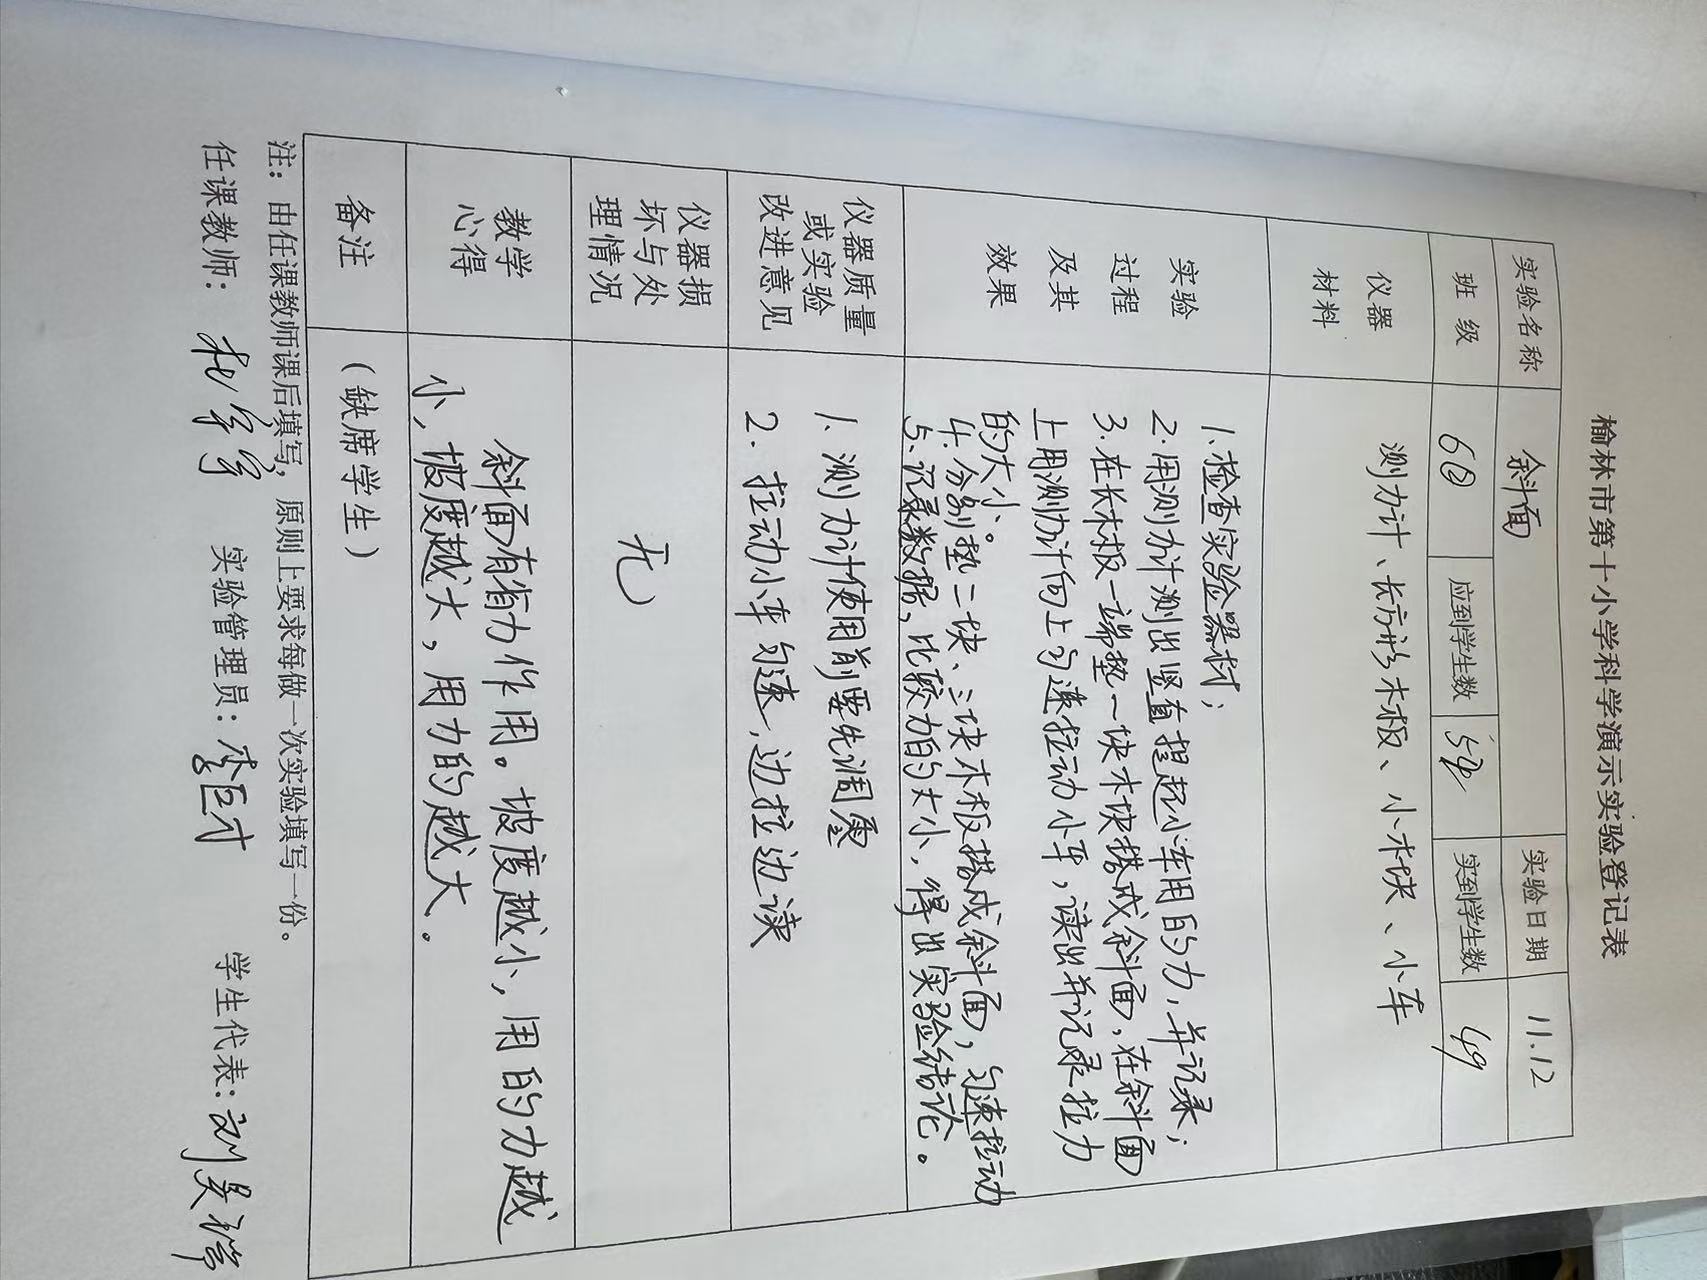 榆林市第十小学科学演示实验登记表
实验名称 斜面 实验日期 11.12
班级 6② 应到学生数 实到学生数 49
仪器
材料
测力计、长方形木板、小木块、小车
实验
过程
及其
效果
1.检查实验器材；
2.用测力计测出竖直提起小车用的力,并记录；
3.在长木板一端垫一块木块搭成斜面,在斜面
上用测力计向上匀速拉动小车,读出并记录拉力
的大小。
4.分别垫二块、三块木板搭成斜面,匀速拉动
5.记录数据,比较力的大小,得出实验结论。
仪器质量
或实验
改进意见
1.测力计使用前要先调零
2.拉动小车匀速,边拉边读
仪器损
坏与处
理情况
无
教学
心得
斜面有省力作用。坡度越小,用的力越
小,坡度越大,用力的越大.
备注
(缺席学生)
注：由任课教师课后填写，原则上要求每做一次实验填写一份。
任课教师： 实验管理员： 学生代表: 刘昊